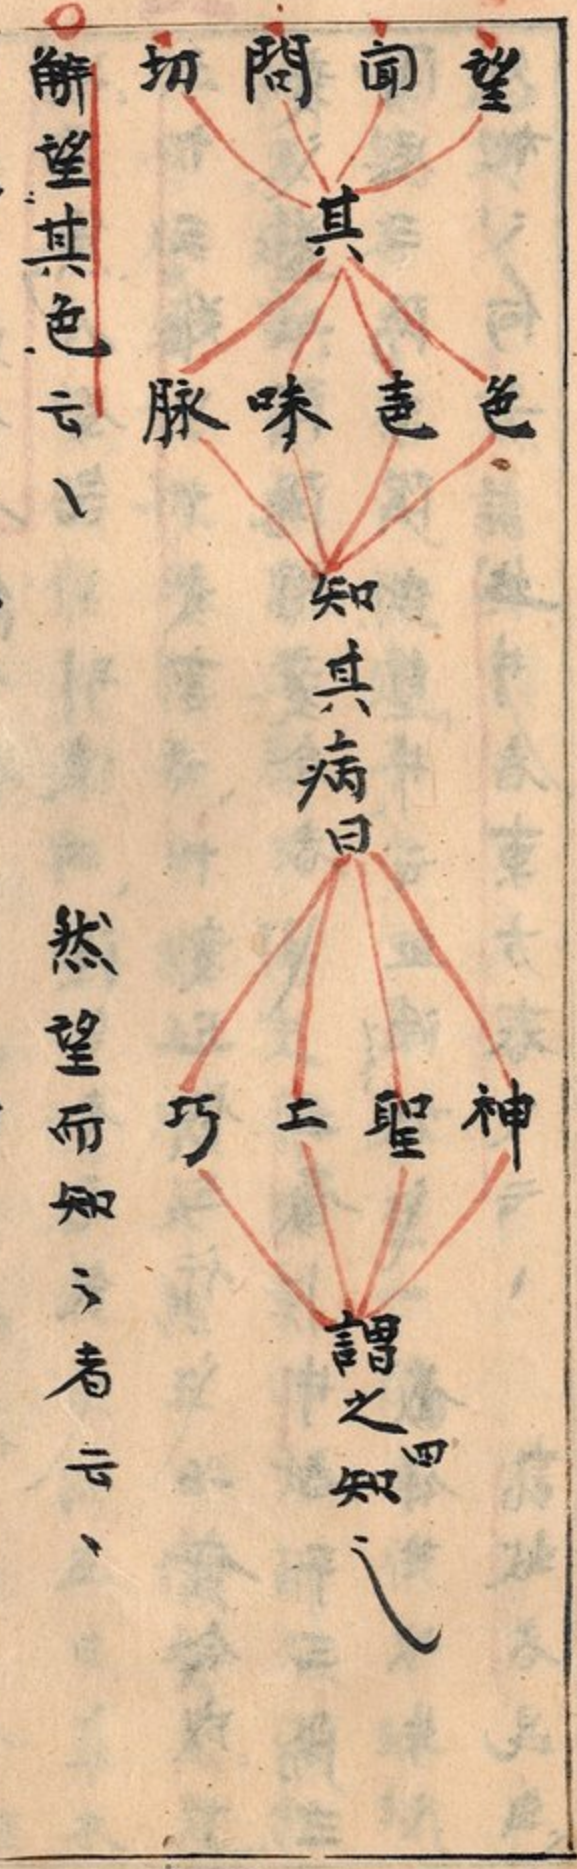 望 聞 問 切
其
色 𦔻 味 脉
知其病曰
神 聖 工 巧
謂之四知
解望其色云〻
然望而知之者云〻